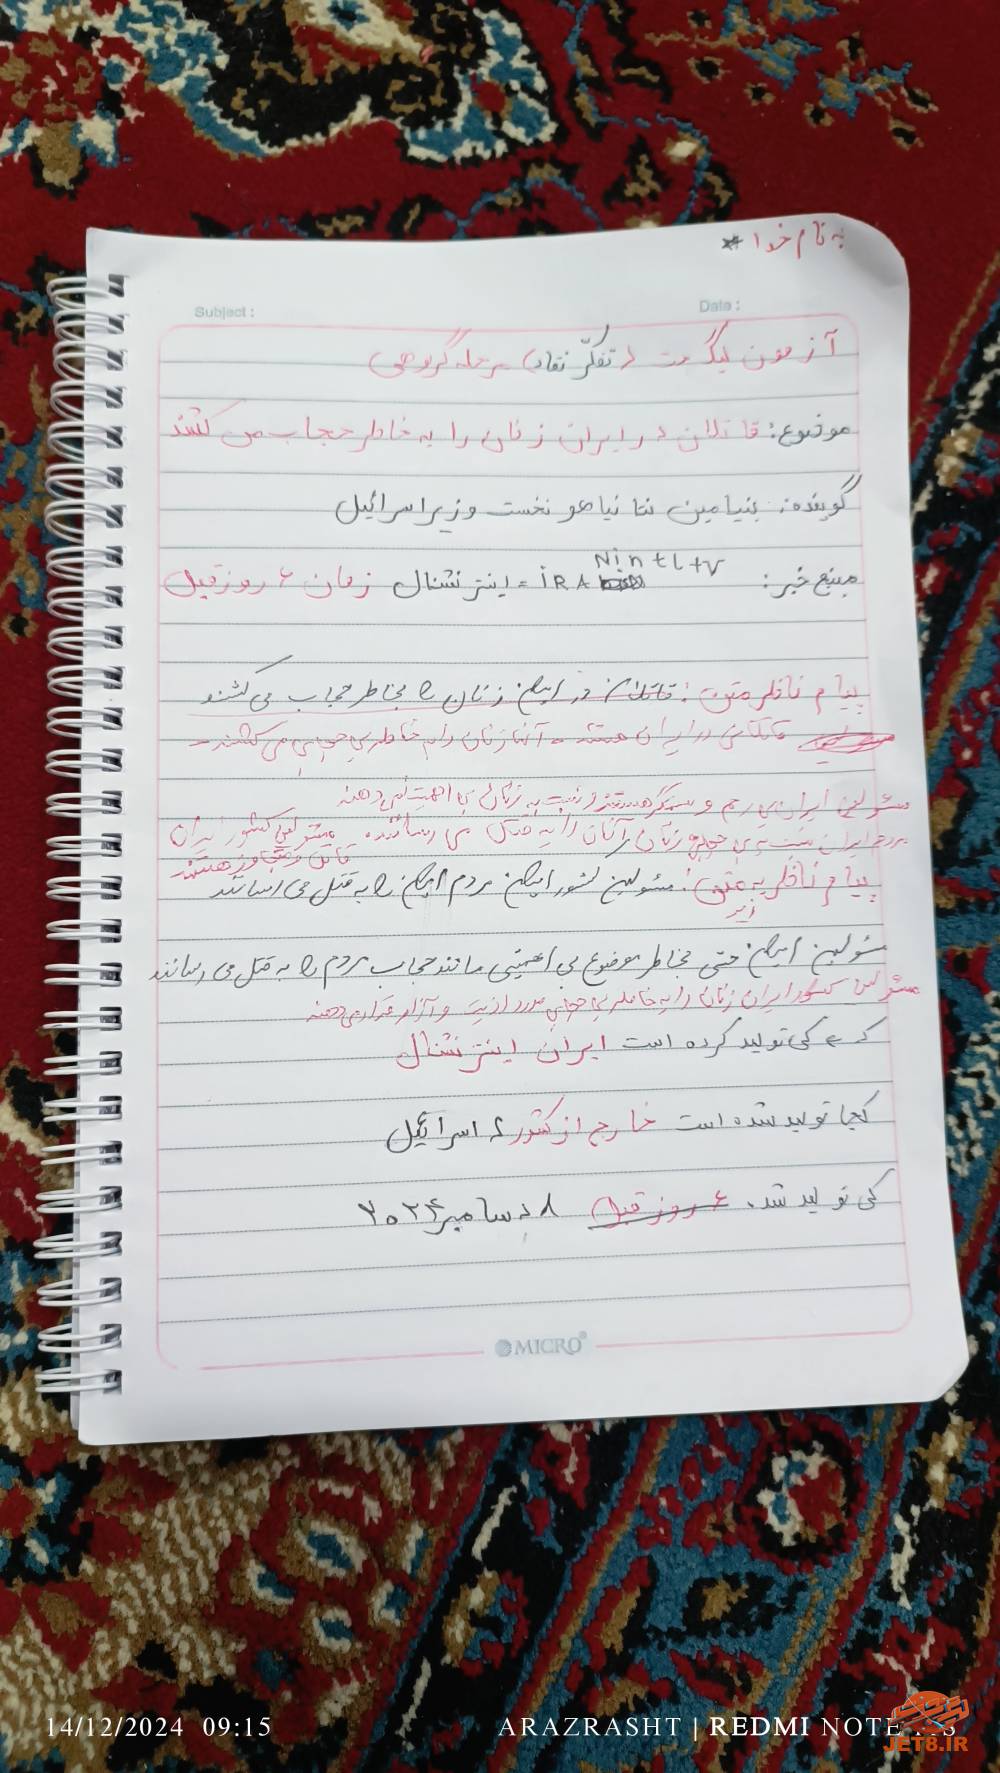 به نام خدا *
Subject :
Date :
آزمون لیگ (تفکّر نقاد) مرحله گروهی
موضوع: قاتلان در ایران زنان را به خاطر حجاب می کشند
گوینده: بنیامین نتانیاهو نخست وزیر اسرائیل
Nintltv
منبع خبر: iRA = اینترنشنال زمان 6 روز قبل
پیام ناظر متن: قاتلان در ایران زنان را بخاطر حجاب می کشند
در ایران هستند - آنها زنان را به خاطر بی حجابی می کشند -
مسئولین ایران بی رحم و ستمگر هستند و نسبت به زنان بی اهمیت
مردم ایران نسبت به بی حجابی زنان آنان را به قتل می رسانند. مسئولین کشور ایران
قاتل و متجاوز هستند
پیام ناظر به متن: مسئولین کشور ایران مردم ایران را به قتل می رسانند
زیر
مسئولین ایران حتی بخاطر موضوع بی اهمیتی مانند حجاب مردم را به قتل می رسانند
مسئولین کشور ایران زنان را به خاطر بی حجابی مورد اذیت و آزار قرار می دهند
کی تولید کرده است ایران اینترنشنال
کجا تولید شده است خارج از کشور اسرائیل
کی تولید شد. 6 روز قبل 8 دسامبر 2024
MICRO
14/12/2024 09:15
ARAZRASHT | REDMI NOTE
JET8.IR